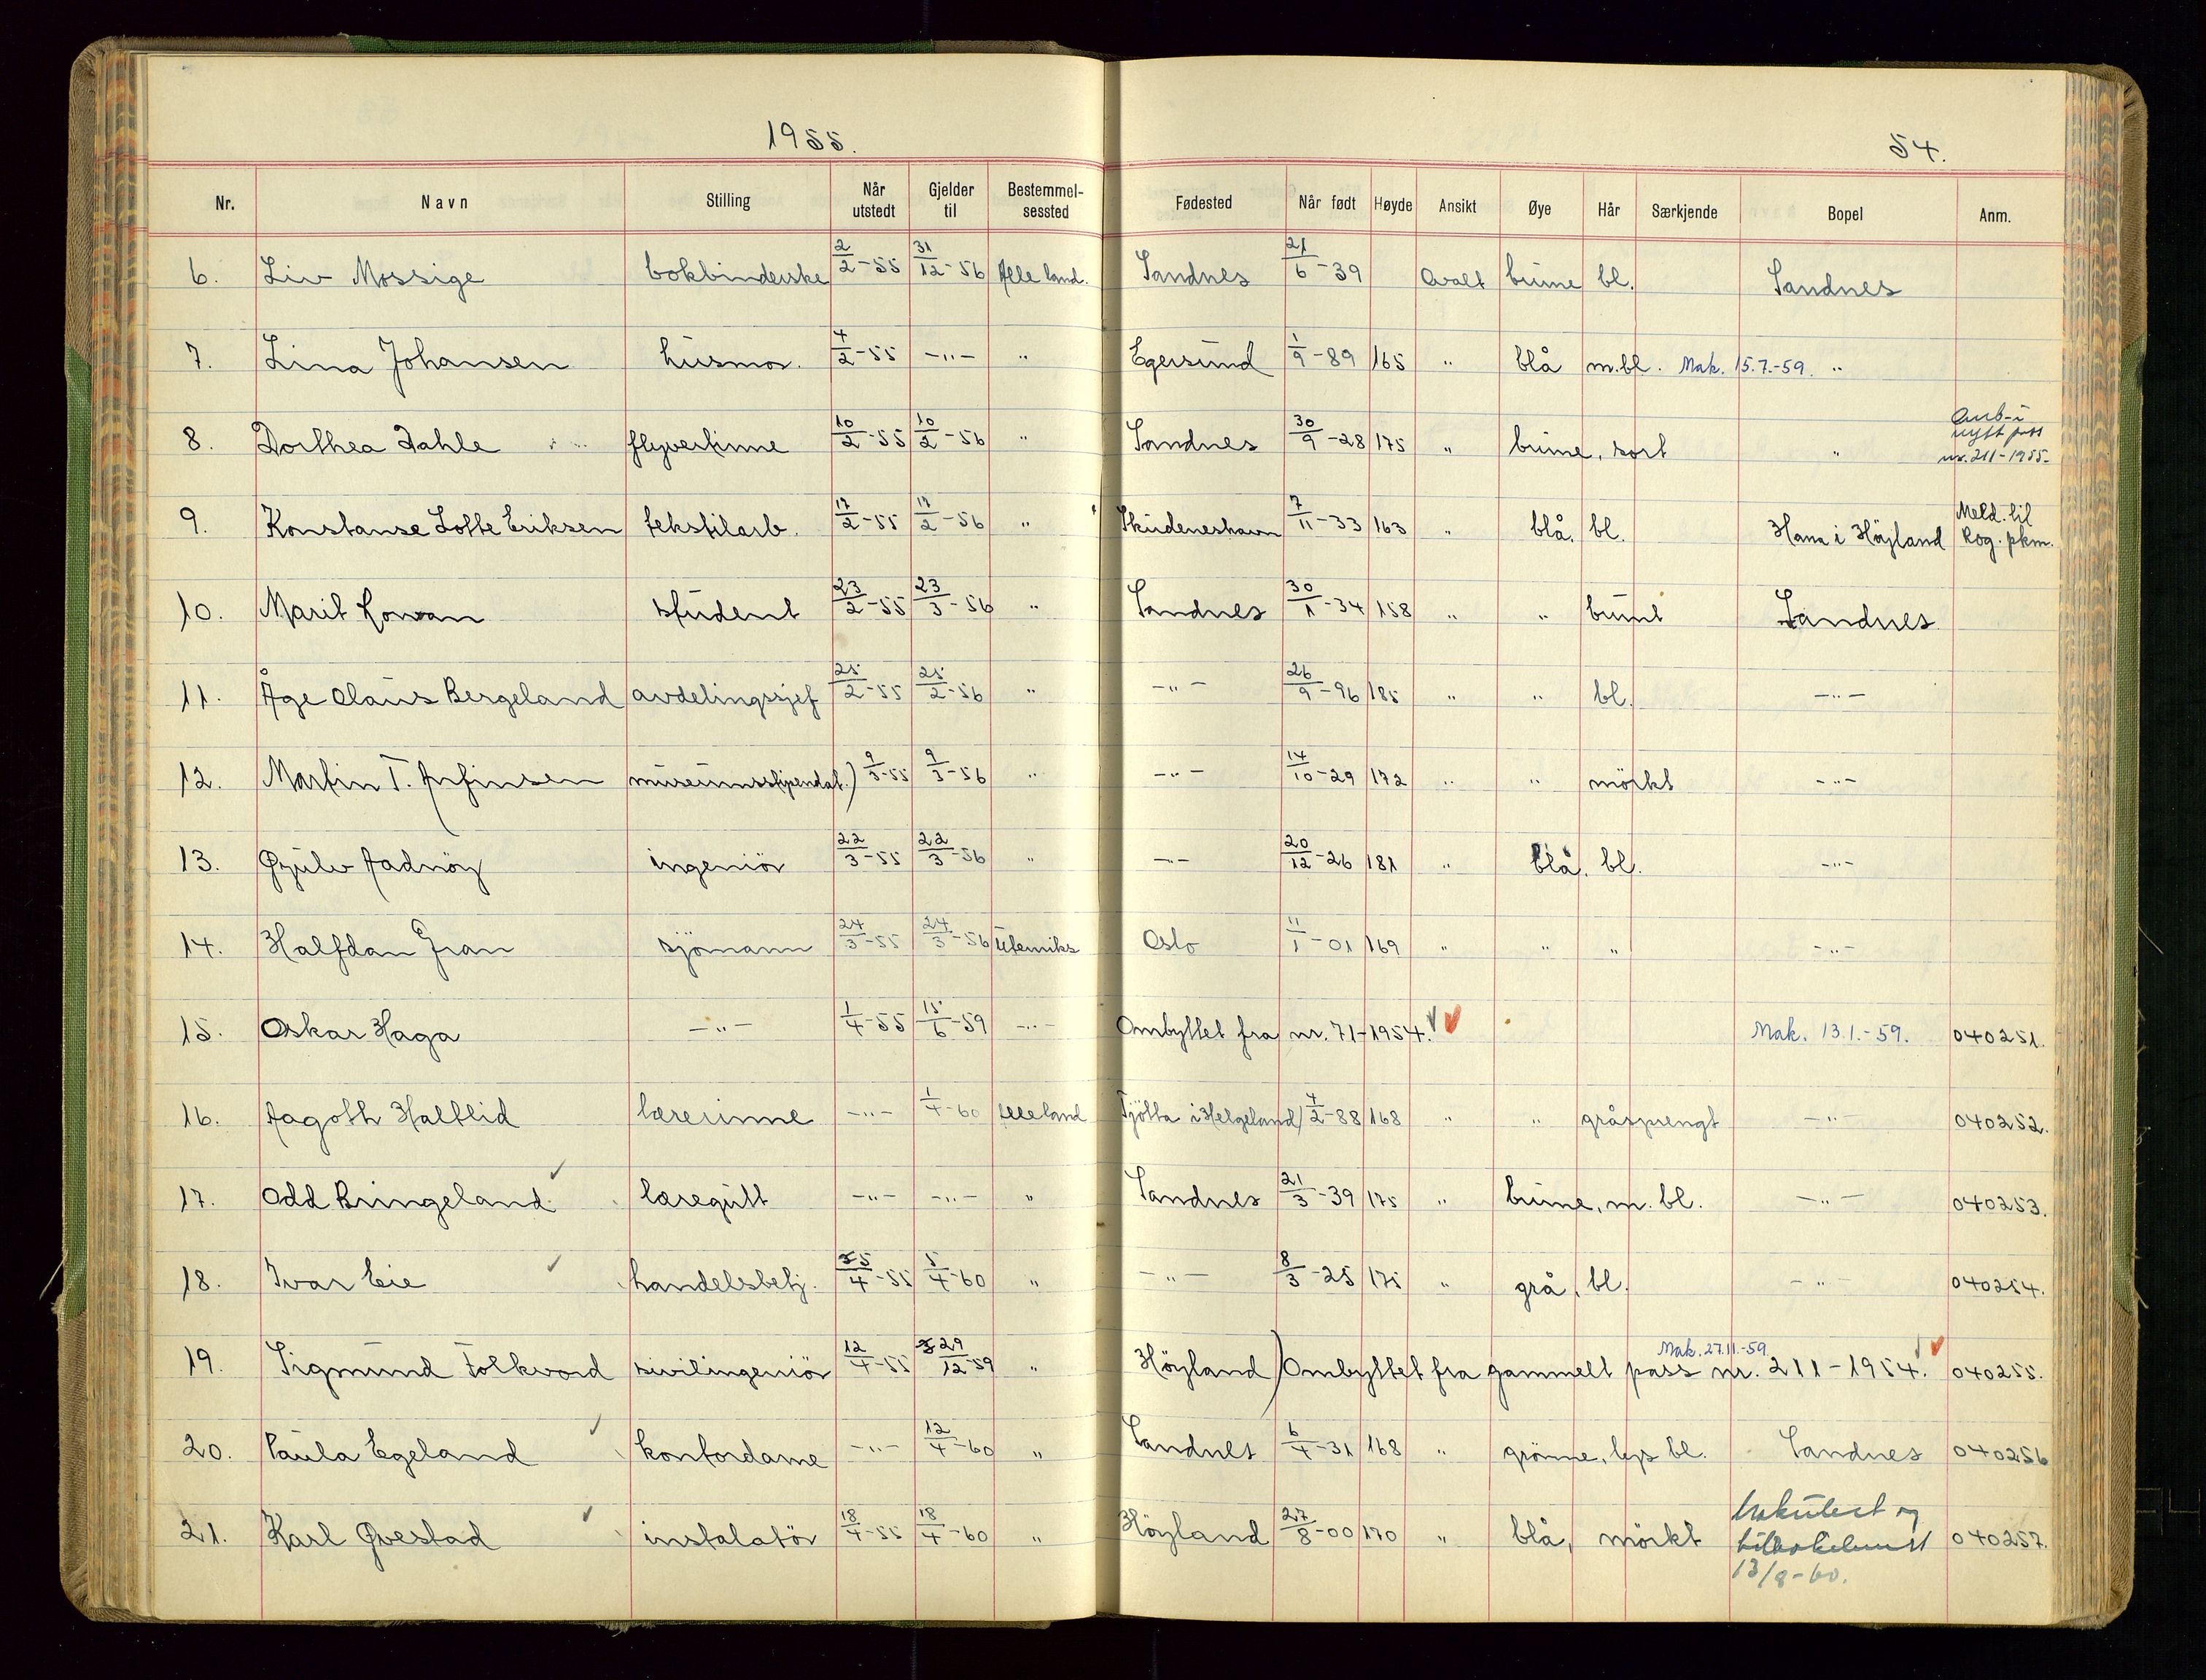 1955.
54.
Nr. Navn Stilling Når utstedt Gjelder til Bestemmelsessted Fødested Når født Høyde Ansikt Øye Hår Særkjende Bopel Anm.
6. Liv Mossige bokbinderske 2/2-55 31/12-56 Alle land. Sandnes 21/6-39 Ovalt brune bl. Sandnes
7. Lina Johansen husmor. 4/2-55 -"- " Egersund 1/9-89 165 " blå m.bl. Mak. 15.7.-59. "
8. Dorthea Dahle flyvertinne 10/2-55 10/2-56 " Sandnes 30/9-28 175 " brune, sort " nytt pass nr. 211-1955-
9. Konstanse Lotte Eriksen tekstilarb. 17/2-55 17/2-56 " Skudeneshavn 7/11-33 163 " blå, bl. Hana i Höyland Meld. til Rog. pkm.
10. Marit Rowan student 23/2-55 23/3-56 " Sandnes 30/1-34 158 " " brunt Sandnes
11. Åge Claus Bergeland avdelingssjef 25/2-55 25/2-56 " -"- 26/9-96 185 " " bl. -"-
12. Martin T. Arfinsen museumsstipendat.) 9/3-55 9/3-56 " -"- 14/10-29 172 " " mörkt -"-
13. Gjulv Aadnöy ingeniör 22/3-55 22/3-56 " -"- 20/12-26 181 " blå. bl. -"-
14. Halfdan Gran sjömann 24/3-55 24/3-56 Utenriks Oslo 11/1-01 169 " " " -"-
15. Oskar Haga -"- 1/4-55 15/6-59 -"- Ombyttet fra nr. 71-1954. Mak. 13.1.-59. 040251.
16. Aagoth Haltlid lærerinne -"- 1/4-60 Alle land Tjötta i Helgeland 4/2-88 168 " " gråsprengt -"- 040252.
17. Odd Bringeland læregutt -"- -"- " Sandnes 21/3-39 175 " brune, m. bl. -"- 040253.
18. Ivar Eie handelsbetj. 5/4-55 5/4-60 " -"- 8/3-25 175 " grå, bl. -"- 040254.
19. Sigmund Folkvord sivilingeniör 12/4-55 29/12-59 " Höyland) Ombyttet fra gammelt pass nr. 211-1954. Mak. 27.11.-59. 040255.
20. Paula Egeland kontordame -"- 12/4-60 " Sandnes 6/4-31 168 " grönne, lys bl. Sandnes 040256
21. Karl Qvestad instalatör 18/4-55 18/4-60 " Höyland 27/8-00 170 " blå, mörkt 13/8-60. 040257.